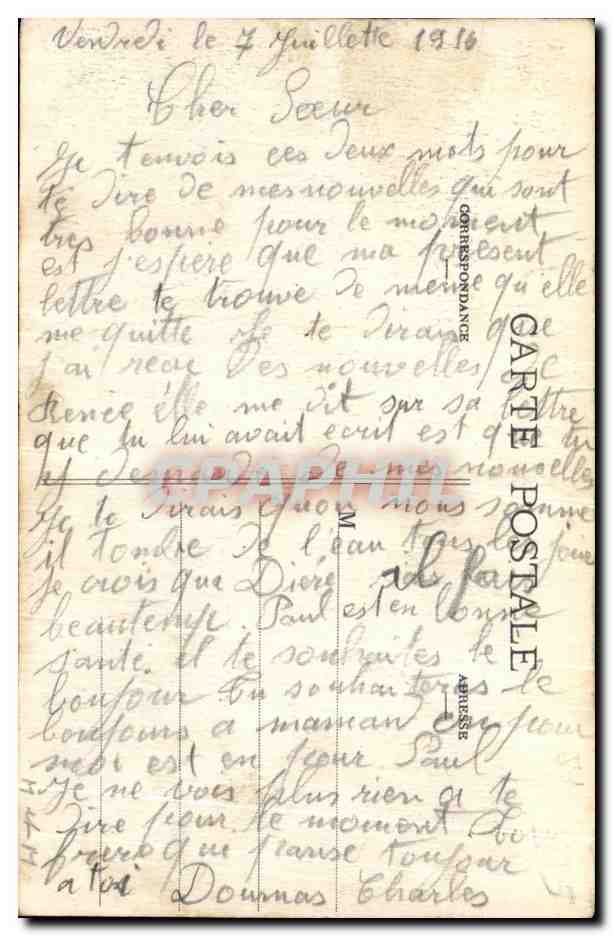 Vendredi le 7 Juillette 1916
Cher Soeur
Je tenvois ces deux mots pour
te dire de mes nouvelles qui sont
tres bonne pour le moment
est j'espere que ma present
lettre te trouve de meme qu'elle
me quitte Je te dirais que
j'ai recu des nouvelles de
Renée elle me dit sur sa lettre
que tu lui avait ecrit est que tu
demande de mes nouvelles
Je te dirais quon nous somme
il tombe de l'eau tous les jour
je crois que il fait
beautemp. Paul est en bonne
santé il te souhaites le
bonjour Tu souhaiteras le
bonjours a maman pour
moi est en pour Paul
Je ne vois plus rien a te
dire pour le moment
frere que panse toujour
a toi Doumas Charles
CORRESPONDANCE
CARTE POSTALE
ADRESSE
M